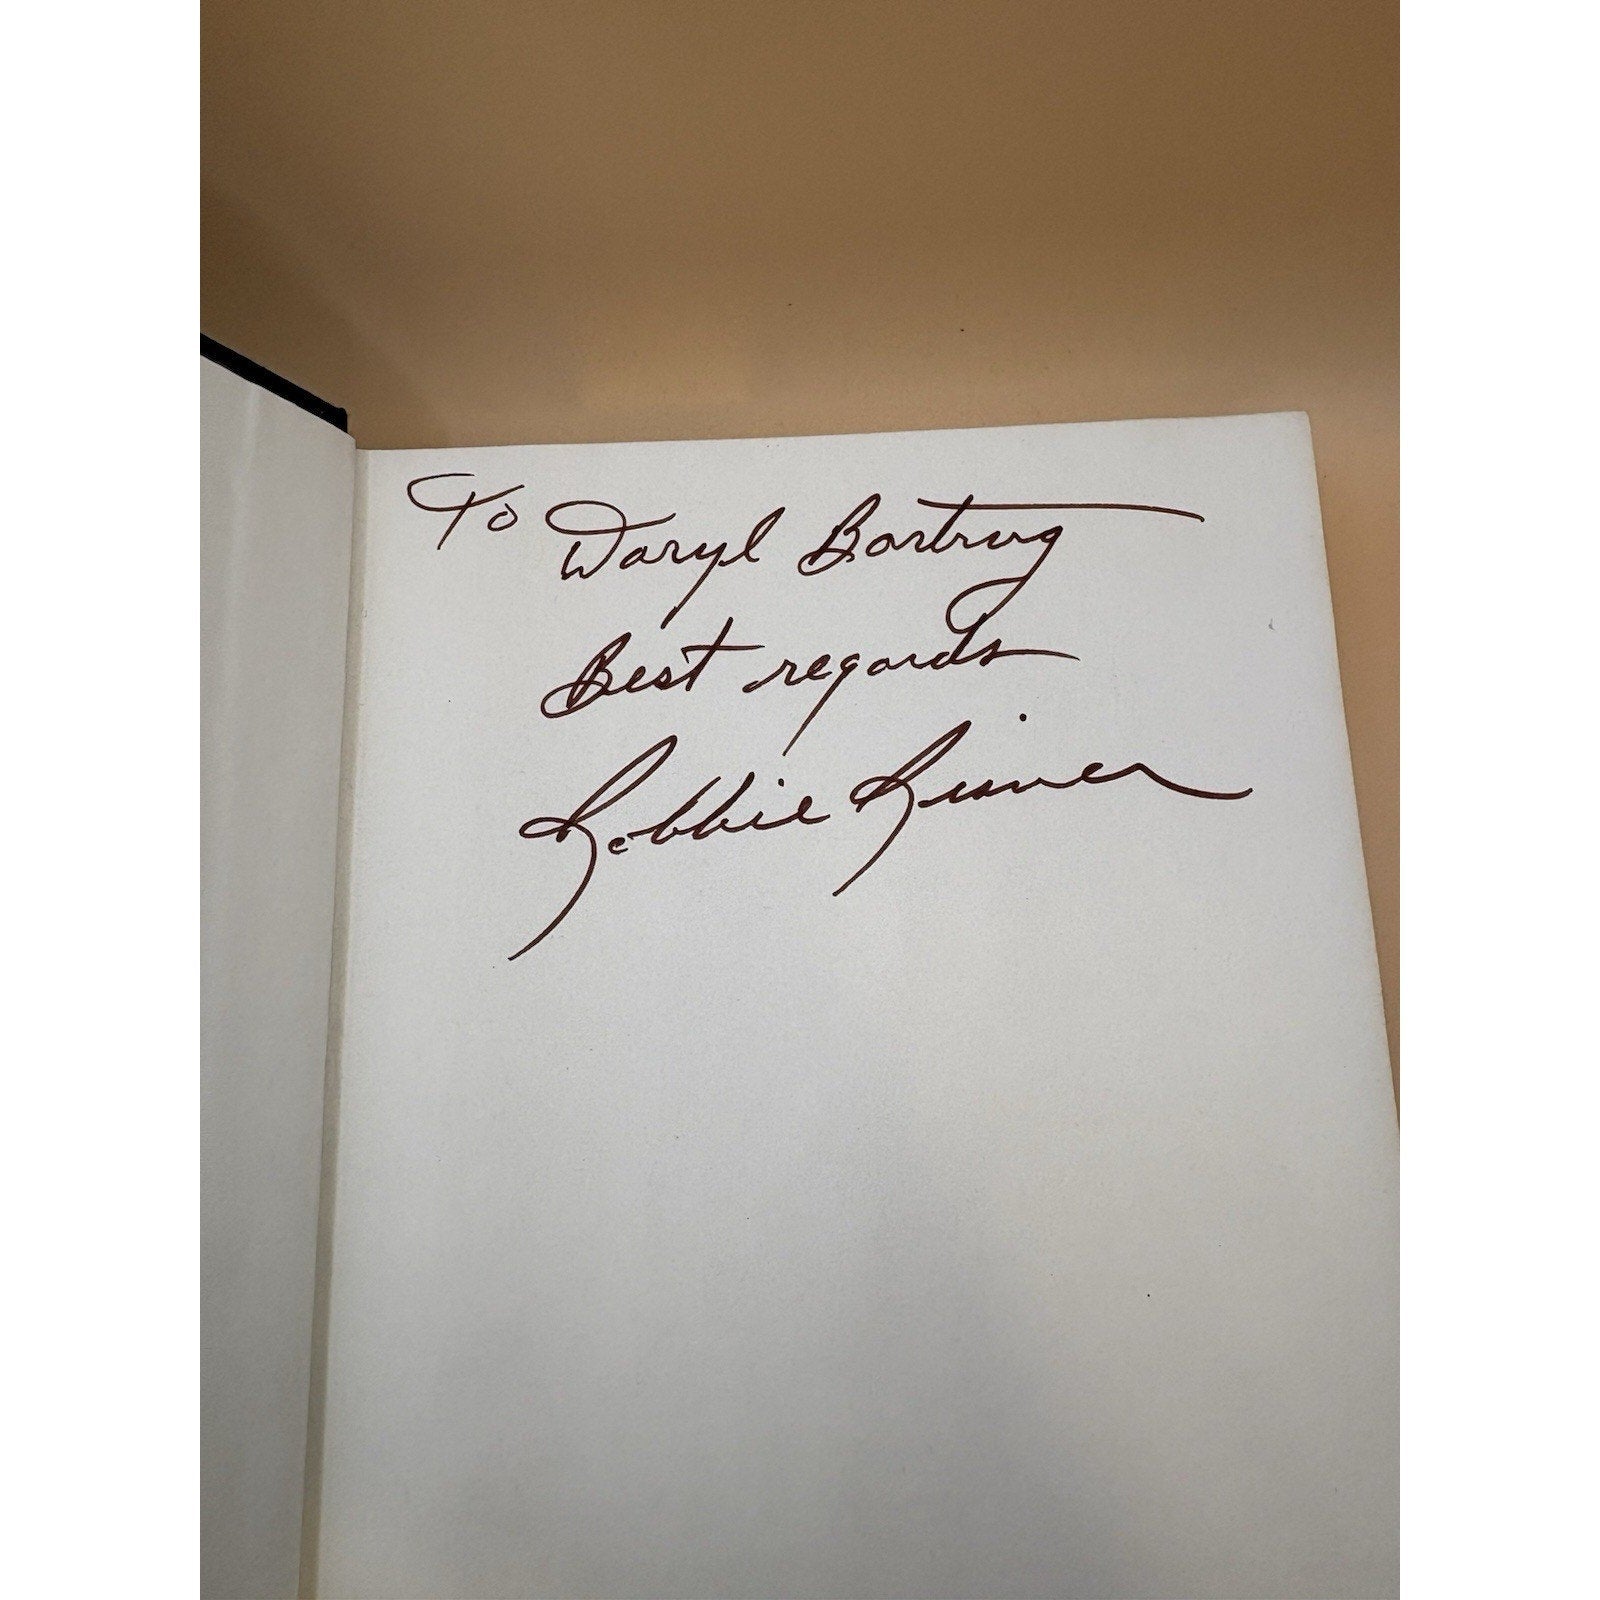 To Daryl Bartrug
Best regards
Robbie Risner